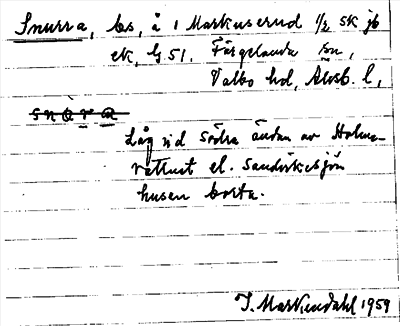 Snurra, bs, å 1 Markuserud 1/2 sk jb
ek, G.51. Färgelanda sn,
Valbo hd, Älvsb. l,
snò̱ṟa̱
Låg vid södra ändan av Holme-
vattnet el. Sandvikesjön
husen borta.
I. Markendahl 1959